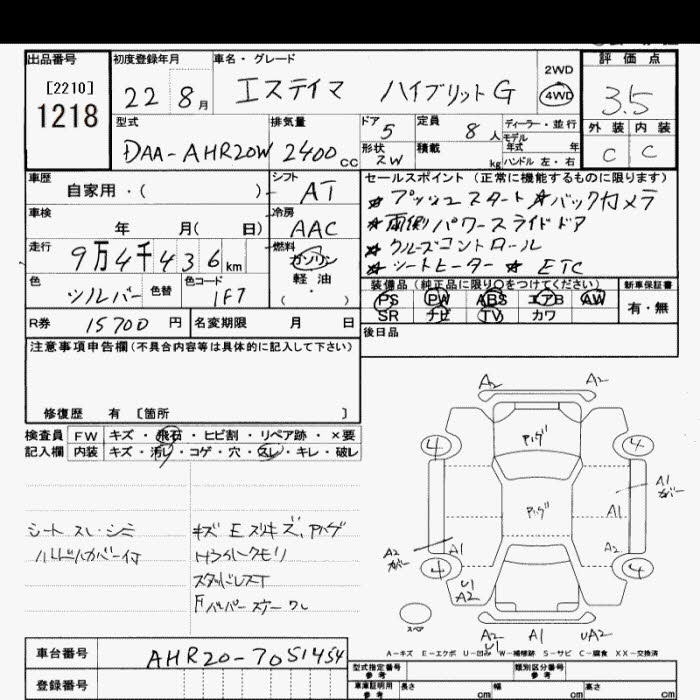 出品番号 初度登録年月 車名・グレード 評価点
[2210]
1218
22 8月 エスティマ ハイブリットG 2WD 4WD 3.5
型式 排気量 ドア 5 定員 8人 ディーラー・並行 外装 内装
モデル年式 年
DAA-AHR20W 2400cc 形状 SW 積載 kg ハンドル 左・右 C C
車歴 自家用・( ) シフト AT セールスポイント(正常に機能するものに限ります)
★プッシュスタート ★バックカメラ
車検 年 月( 日) 冷房 AAC ★両側パワースライドドア
走行 9万4千436km 燃料 ガソリン 軽油 ( ) ★クルーズコントロール
★シートヒーター ★ETC
色 シルバー 色替 色コード 1F7
装備品(純正品に限り○をつけてください) 新車保証書
PS PW ABS エアB AW 有・無
SR ナビ TV カワ
R券 15700円 名変期限 月 日 後日品
注意事項申告欄(不具合内容等は具体的に記入して下さい)
修復歴 有 [箇所 ]
検査員 FW キズ・飛石・ヒビ割・リペア跡・×要
記入欄 内装 キズ・汚レ・コゲ・穴・スレ・キレ・破レ
シート スレ・シミ
キズ Eスリキズ、アハゲ
スタッドレスT
A2 A2
4 ハゲ 4
A1 カバー
ハゲ A1
A2 カバー A1 A2
4 4
U1 A2
スペア
A2 U1 A1 UA2
A-キズ E-エクボ U-凹み W-補修跡 S-サビ C-腐食 XX-交換済
車台番号 AHR20-7051454
型式指定番号 参考 類別区分番号 参考
登録番号 車庫証明用 参考 長さ cm 幅 cm 高さ cm